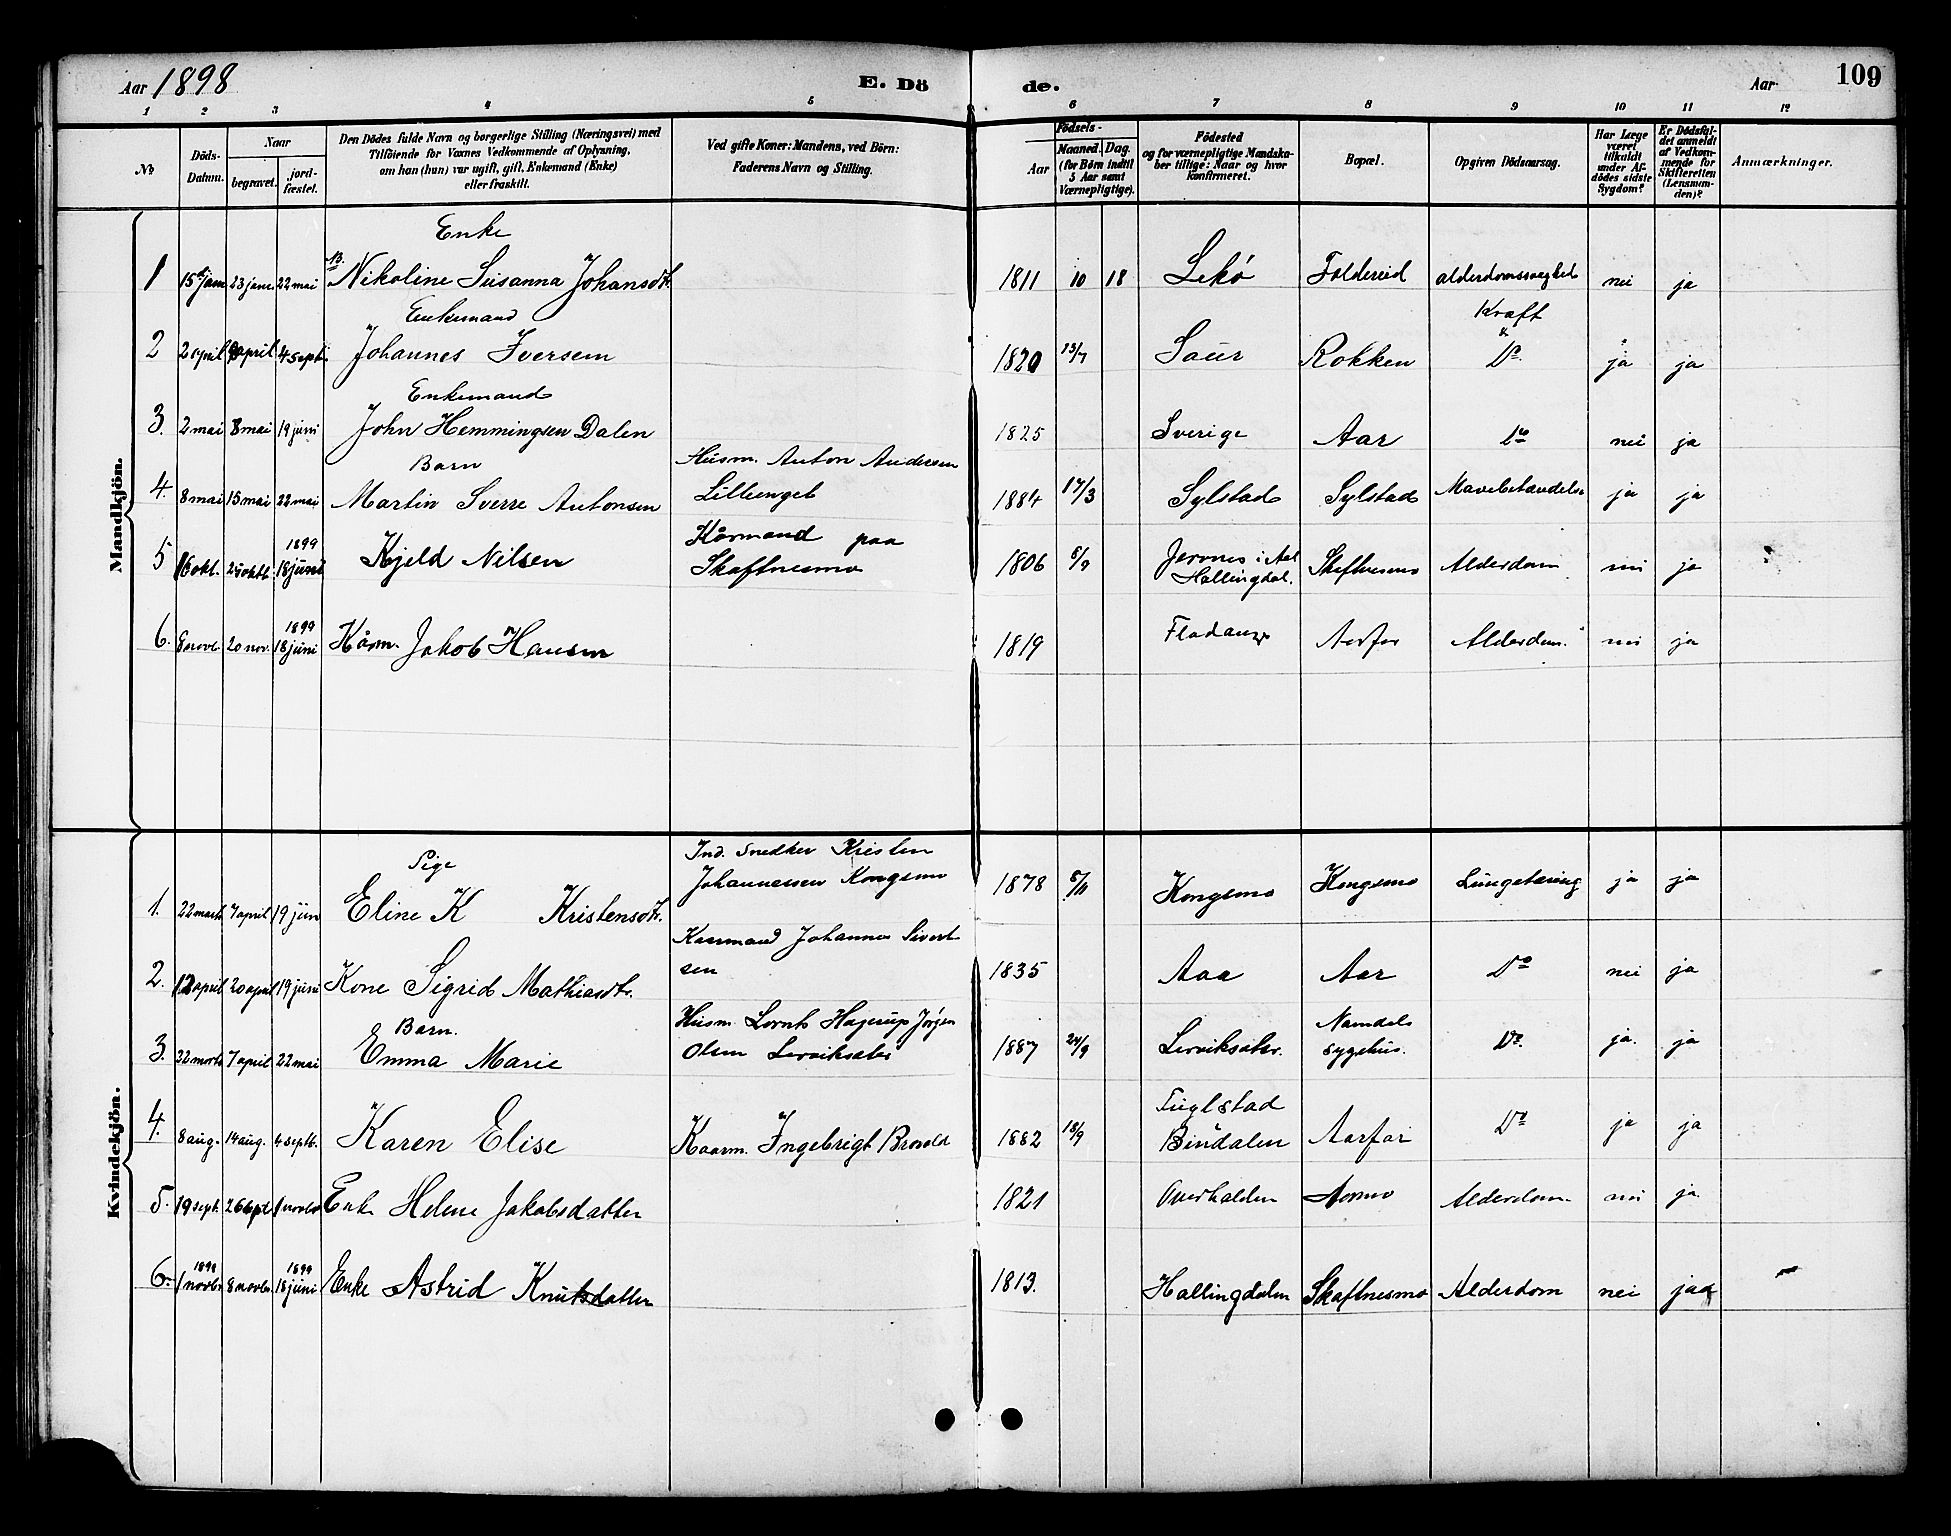 Aar 1898 E. Dö de. Aar 109
1 2 3 4 5 6 7 8 9 10 11 12
№
Döds-
Datum.
Naar
begravet.
jord-
fæstet.
Den Dödes fulde Navn og borgerlige Stilling (Næringsvei) med
Tilföiende for Voxnes Vedkommende af Oplysning,
om han (hun) var ugift, gift, Enkemand (Enke)
eller fraskilt.
Ved gifte Koner: Mandens, ved Börn:
Faderens Navn og Stilling.
Födsels-
Aar
Maaned. Dag.
(for Börn indtil
5 Aar samt
Værnepligtige).
Födested
og for værnepligtige Mandska-
ber tillige: Naar og hvor
konfirmeret.
Bopæl.
Opgiven Dödsaarsag.
Har Læge
været
tilkaldt
under Af-
dödes sidste
Sygdom?
Er Dödsfal-
det anmeldt
af Vedkom-
mende for
Skifteretten
(Lensman-
den)?
Anmærkninger.
Mandkjön.
Enke
1 15 jan 23 jan. 22 mai NB. Nikoline Susanna Johansdt 1811 10 18 Lekø Foldereid alderdomssvaghet nei ja
Enkemand Kræft
2 2 april april 4 sept. Johannes Iversen 1820 13/7 Saur Rokken Do ja ja
Enkemand
3. 2 mai 8 mai 19 juni John Hemmingsen Dalen 1825 Sverige Aar Do nei ja
Barn Husm. Anton Andersen
4. 8 mai 15 mai 22 mai Martin Sverre Antonsen Lillienget 1884 17/3 Sylstad Sylstad Mavebetændelse ja ja
1899 Kårmand paa
5 16 okt. 25 oktb. 18 juni Kjeld Nilsen Skaftnesmo 1806 6/9 i Aal Hallingdal. Skaftnesmo Alderdom nei ja
1899
6. 8 novb. 20 nov. 18 juni Kårm. Jakob Hansen 1819 Aarfor Alderdom. nei ja
Kvindekjön.
Pige Ind. Snedker Kristen
1. 22 marts 7 april 19 jun Eline K Kristensdt. Johannessen Kongsmo 1878 Kongsmo Kongsmo Lungetæring ja ja
Kaarmand Johannes Sivert
2. 12 april 20 april 19 juni Kone Sigrid Mathiasdtr. sen 1835 Aaa Aar Do nei ja
Barn. Husm. Lornts Hagerup Jørgen Namdals
3. 22 marts 7 april 22 mai Emma Marie Olsen Lerviksater 1887 24/9 Lerviksater. sygehus. Do. ja. ja
Fuglstad
4. 8 aug. 14 aug. 4 septb. Karen Elise Kaarm. Ingebrigt 1882 18/9 Bindalen Aarfor Do ja ja
5. 19 sept. 26 sept 1 novbr Enk Helene Jakobsdatter 1821 Overhalden Aarmo Alderdom. nei ja
1898 1899
6. 1 novbr 8 novbr. 18 juni Enke Astrid Knutsdatter 1813. Hallingdalen Skaftnesmo Alderdom nei ja